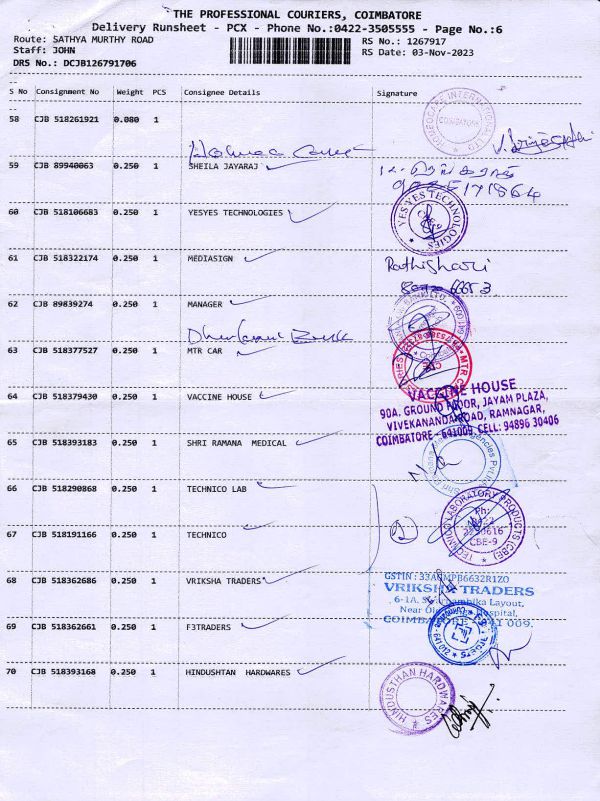 THE PROFESSIONAL COURIERS, COIMBATORE
Delivery Runsheet - PCX - Phone No.:0422-3505555 - Page No.:6
Route: SATHYA MURTHY ROAD
Staff: JOHN
DRS No.: DCJB126791706
RS No.: 1267917
RS Date: 03-Nov-2023
S No Consignment No Weight PCS Consignee Details Signature
58 CJB 518261921 0.080 1
59 CJB 89940063 0.250 1 SHEILA JAYARAJ
60 CJB 518106683 0.250 1 YESYES TECHNOLOGIES
YESYES TECHNOLOGIES
61 CJB 518322174 0.250 1 MEDIASIGN
62 CJB 89839274 0.250 1 MANAGER
63 CJB 518377527 0.250 1 MTR CAR
64 CJB 518379430 0.250 1 VACCINE HOUSE
VACCINE HOUSE
90A. GROUND FLOOR, JAYAM PLAZA,
VIVEKANANDA ROAD, RAMNAGAR,
COIMBATORE - 641009. CELL: 94896 30406
65 CJB 518393183 0.250 1 SHRI RAMANA MEDICAL
66 CJB 518290868 0.250 1 TECHNICO LAB
TECHNICO LABORATORY PRODUCTS (CBE)
Ph:
CBE-9
67 CJB 518191166 0.250 1 TECHNICO
68 CJB 518362686 0.250 1 VRIKSHA TRADERS
VRIKSHA TRADERS
6-1A, Layout,
Near Hospital,
COIMBATORE - 641 009.
69 CJB 518362661 0.250 1 F3TRADERS
70 CJB 518393168 0.250 1 HINDUSHTAN HARDWARES
HINDUSTHAN HARDWARES